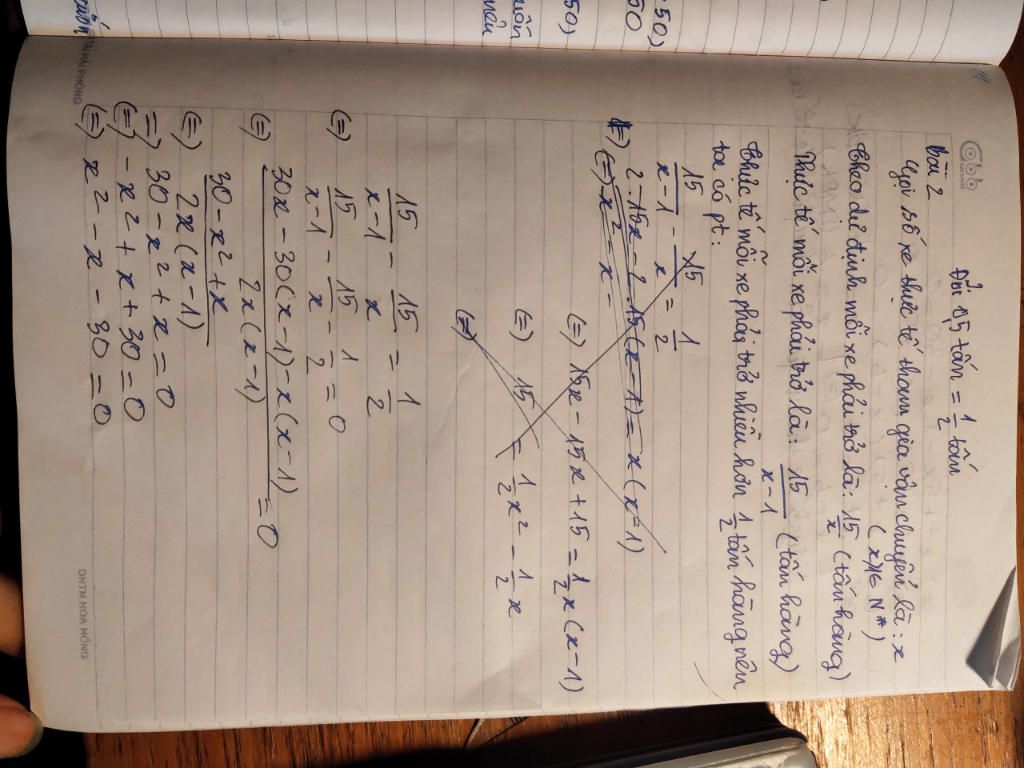 50)
50
50)
uồn
nếu
Đổi 0,5 tấn = 1/2 tấn
Bài 2
Gọi số xe thực tế tham gia vận chuyển là : x
( x ∈ N* )
Theo dự định mỗi xe phải trở là: 15/x (tấn hàng)
Thực tế mỗi xe phải trở là: 15/(x-1) (tấn hàng)
Thực tế mỗi xe phải trở nhiều hơn 1/2 tấn hàng nên
ta có pt:
15/(x-1) - 15/x = 1/2
(=) 15x - 15x + 15 = 1/2 x (x-1)
(=) 15 = 1/2 x² - 1/2 x
(=)
15/(x-1) - 15/x = 1/2
(=) 15/(x-1) - 15/x - 1/2 = 0
(=) (30x - 30(x-1) - x(x-1))/(2x(x-1)) = 0
(=) (30 - x² + x)/(2x(x-1))
=) 30 - x² + x = 0
(=) - x² + x + 30 = 0
(=) x² - x - 30 = 0
HẢI PHÒNG
DNTN HOA HỒNG